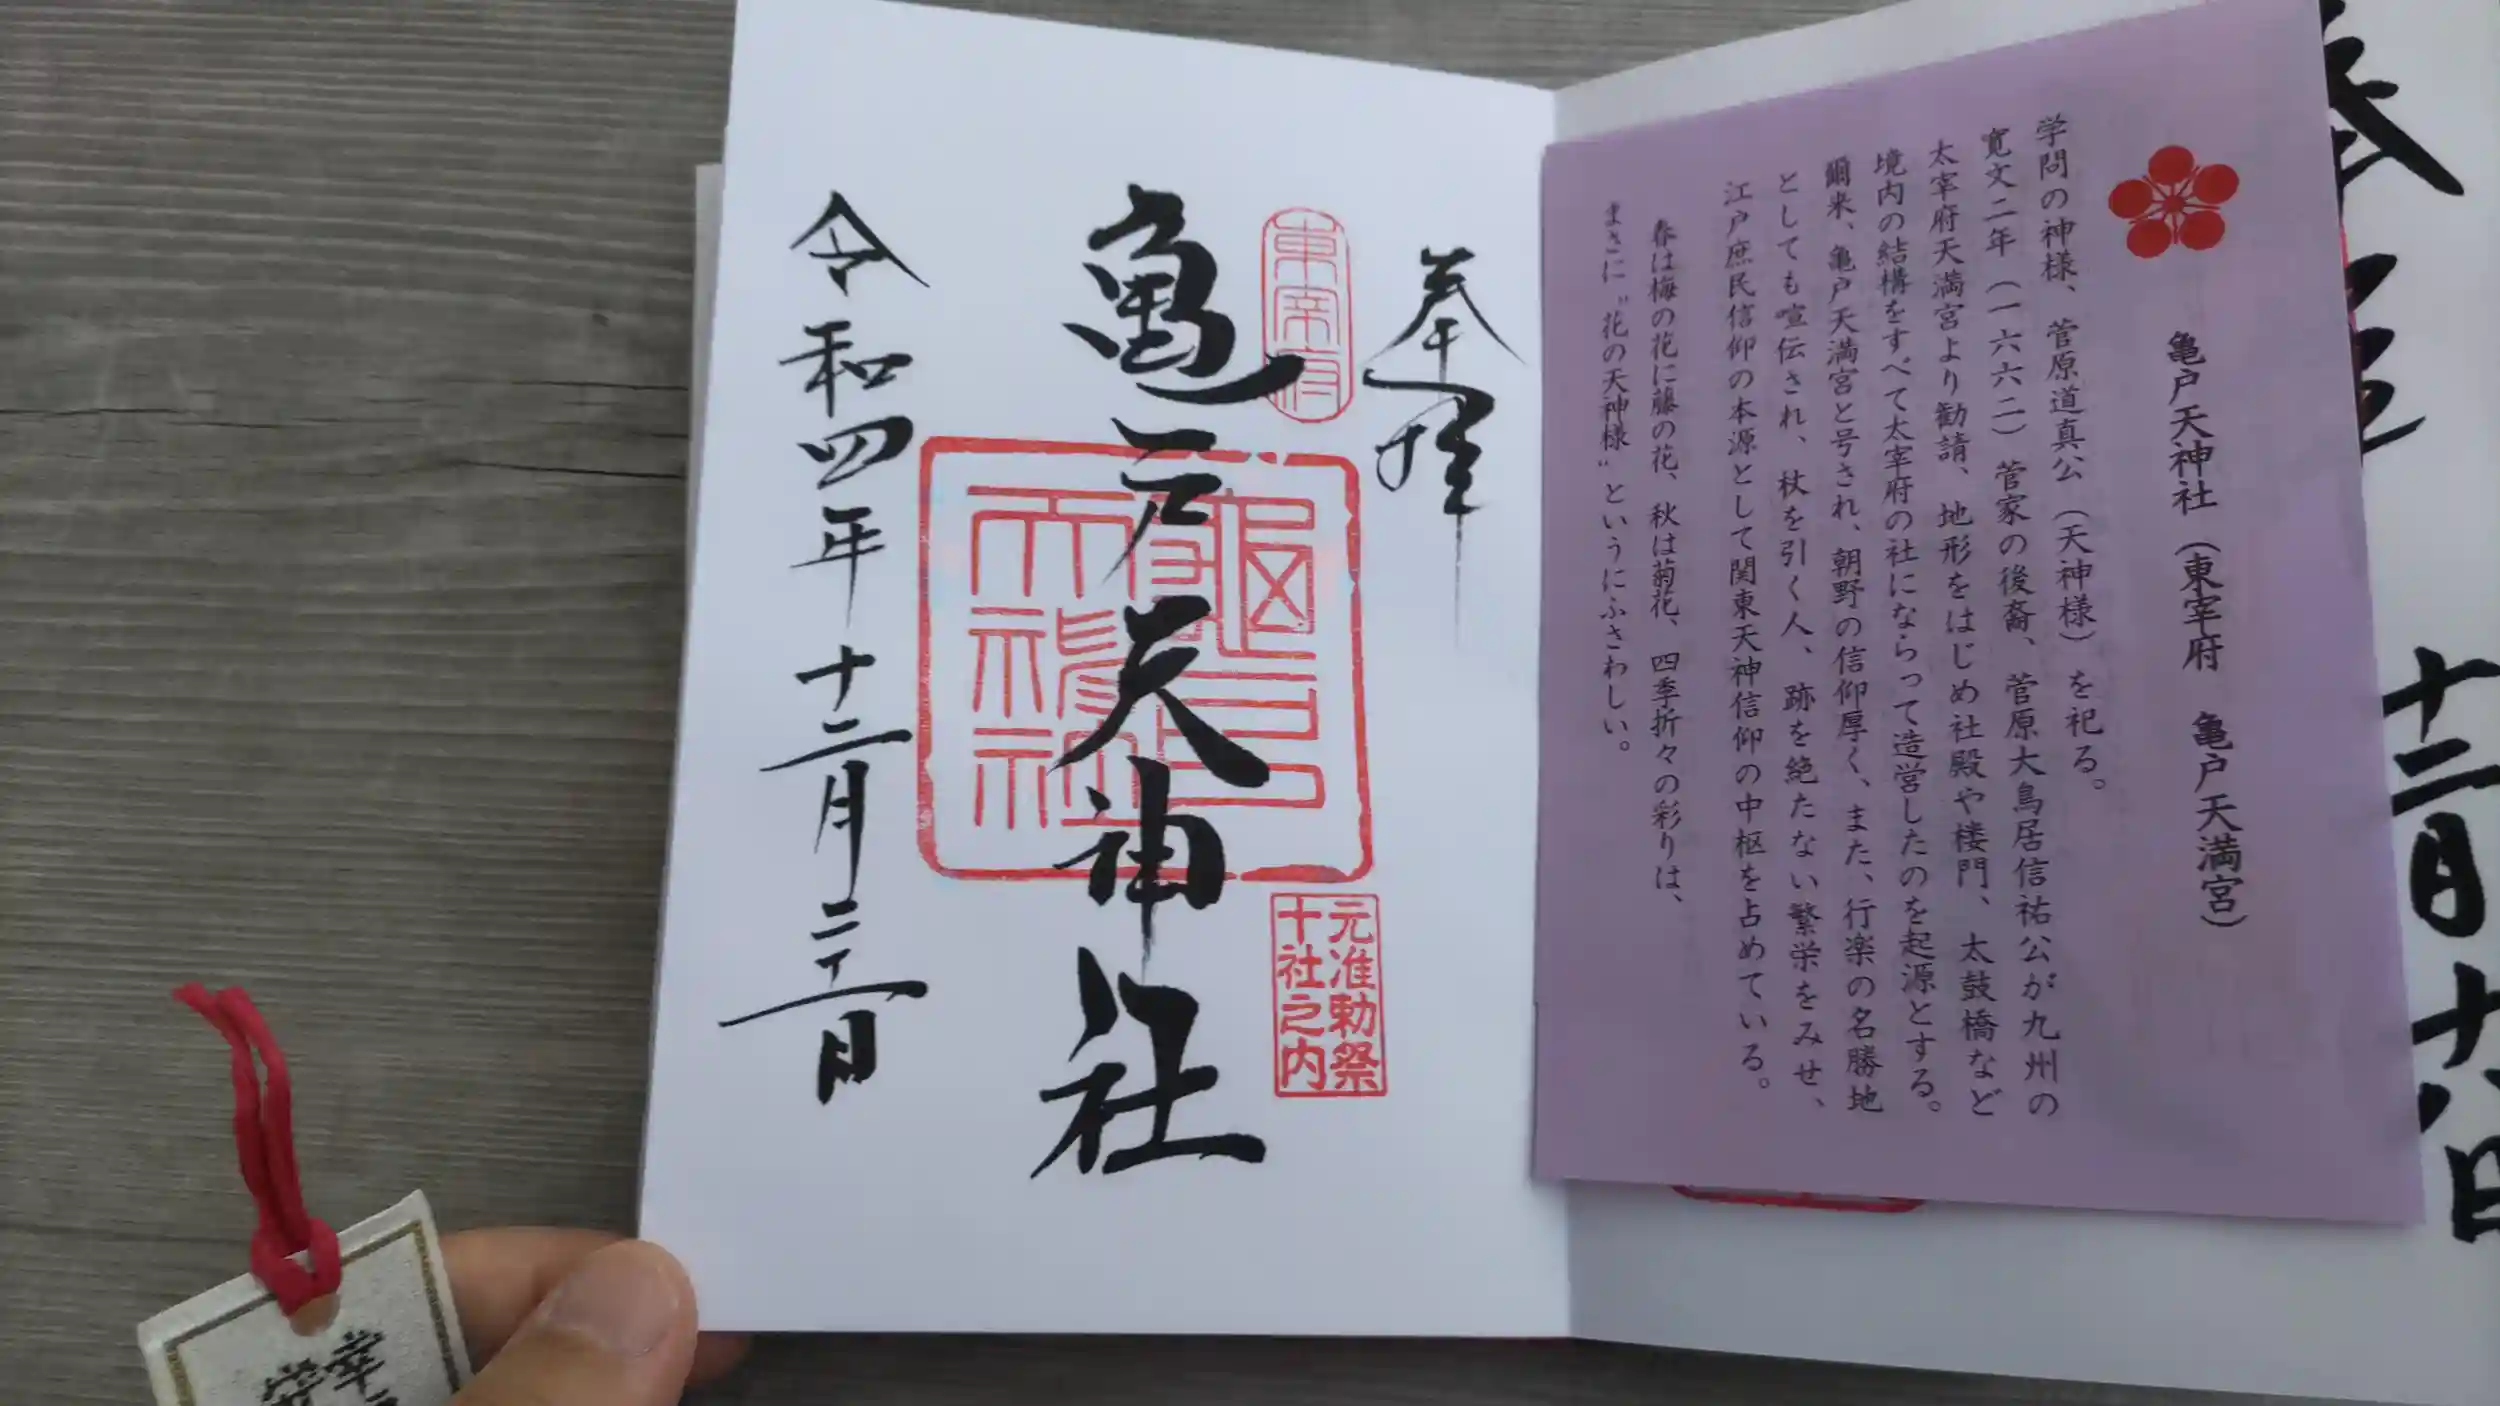 亀戸天神社（東宰府　亀戸天満宮）
学問の神様、菅原道真公（天神様）を祀る。
寛文二年（一六六二）菅家の後裔、菅原大鳥居信祐公が九州の
太宰府天満宮より勧請、地形をはじめ社殿や楼門、太鼓橋など
境内の結構をすべて太宰府の社にならって造営したのを起源とする。
爾来、亀戸天満宮と号され、朝野の信仰厚く、また、行楽の名勝地
としても喧伝され、杖を引く人、跡を絶たない繁栄をみせ、
江戸庶民信仰の本源として関東天神信仰の中枢を占めている。
春は梅の花に藤の花、秋は菊花、四季折々の彩りは、
まさに〝花の天神様〟というにふさわしい。
奉拝
東宰府
亀戸天神社
元准勅祭
十社之内
令和四年十二月二十二日
十二月十八日